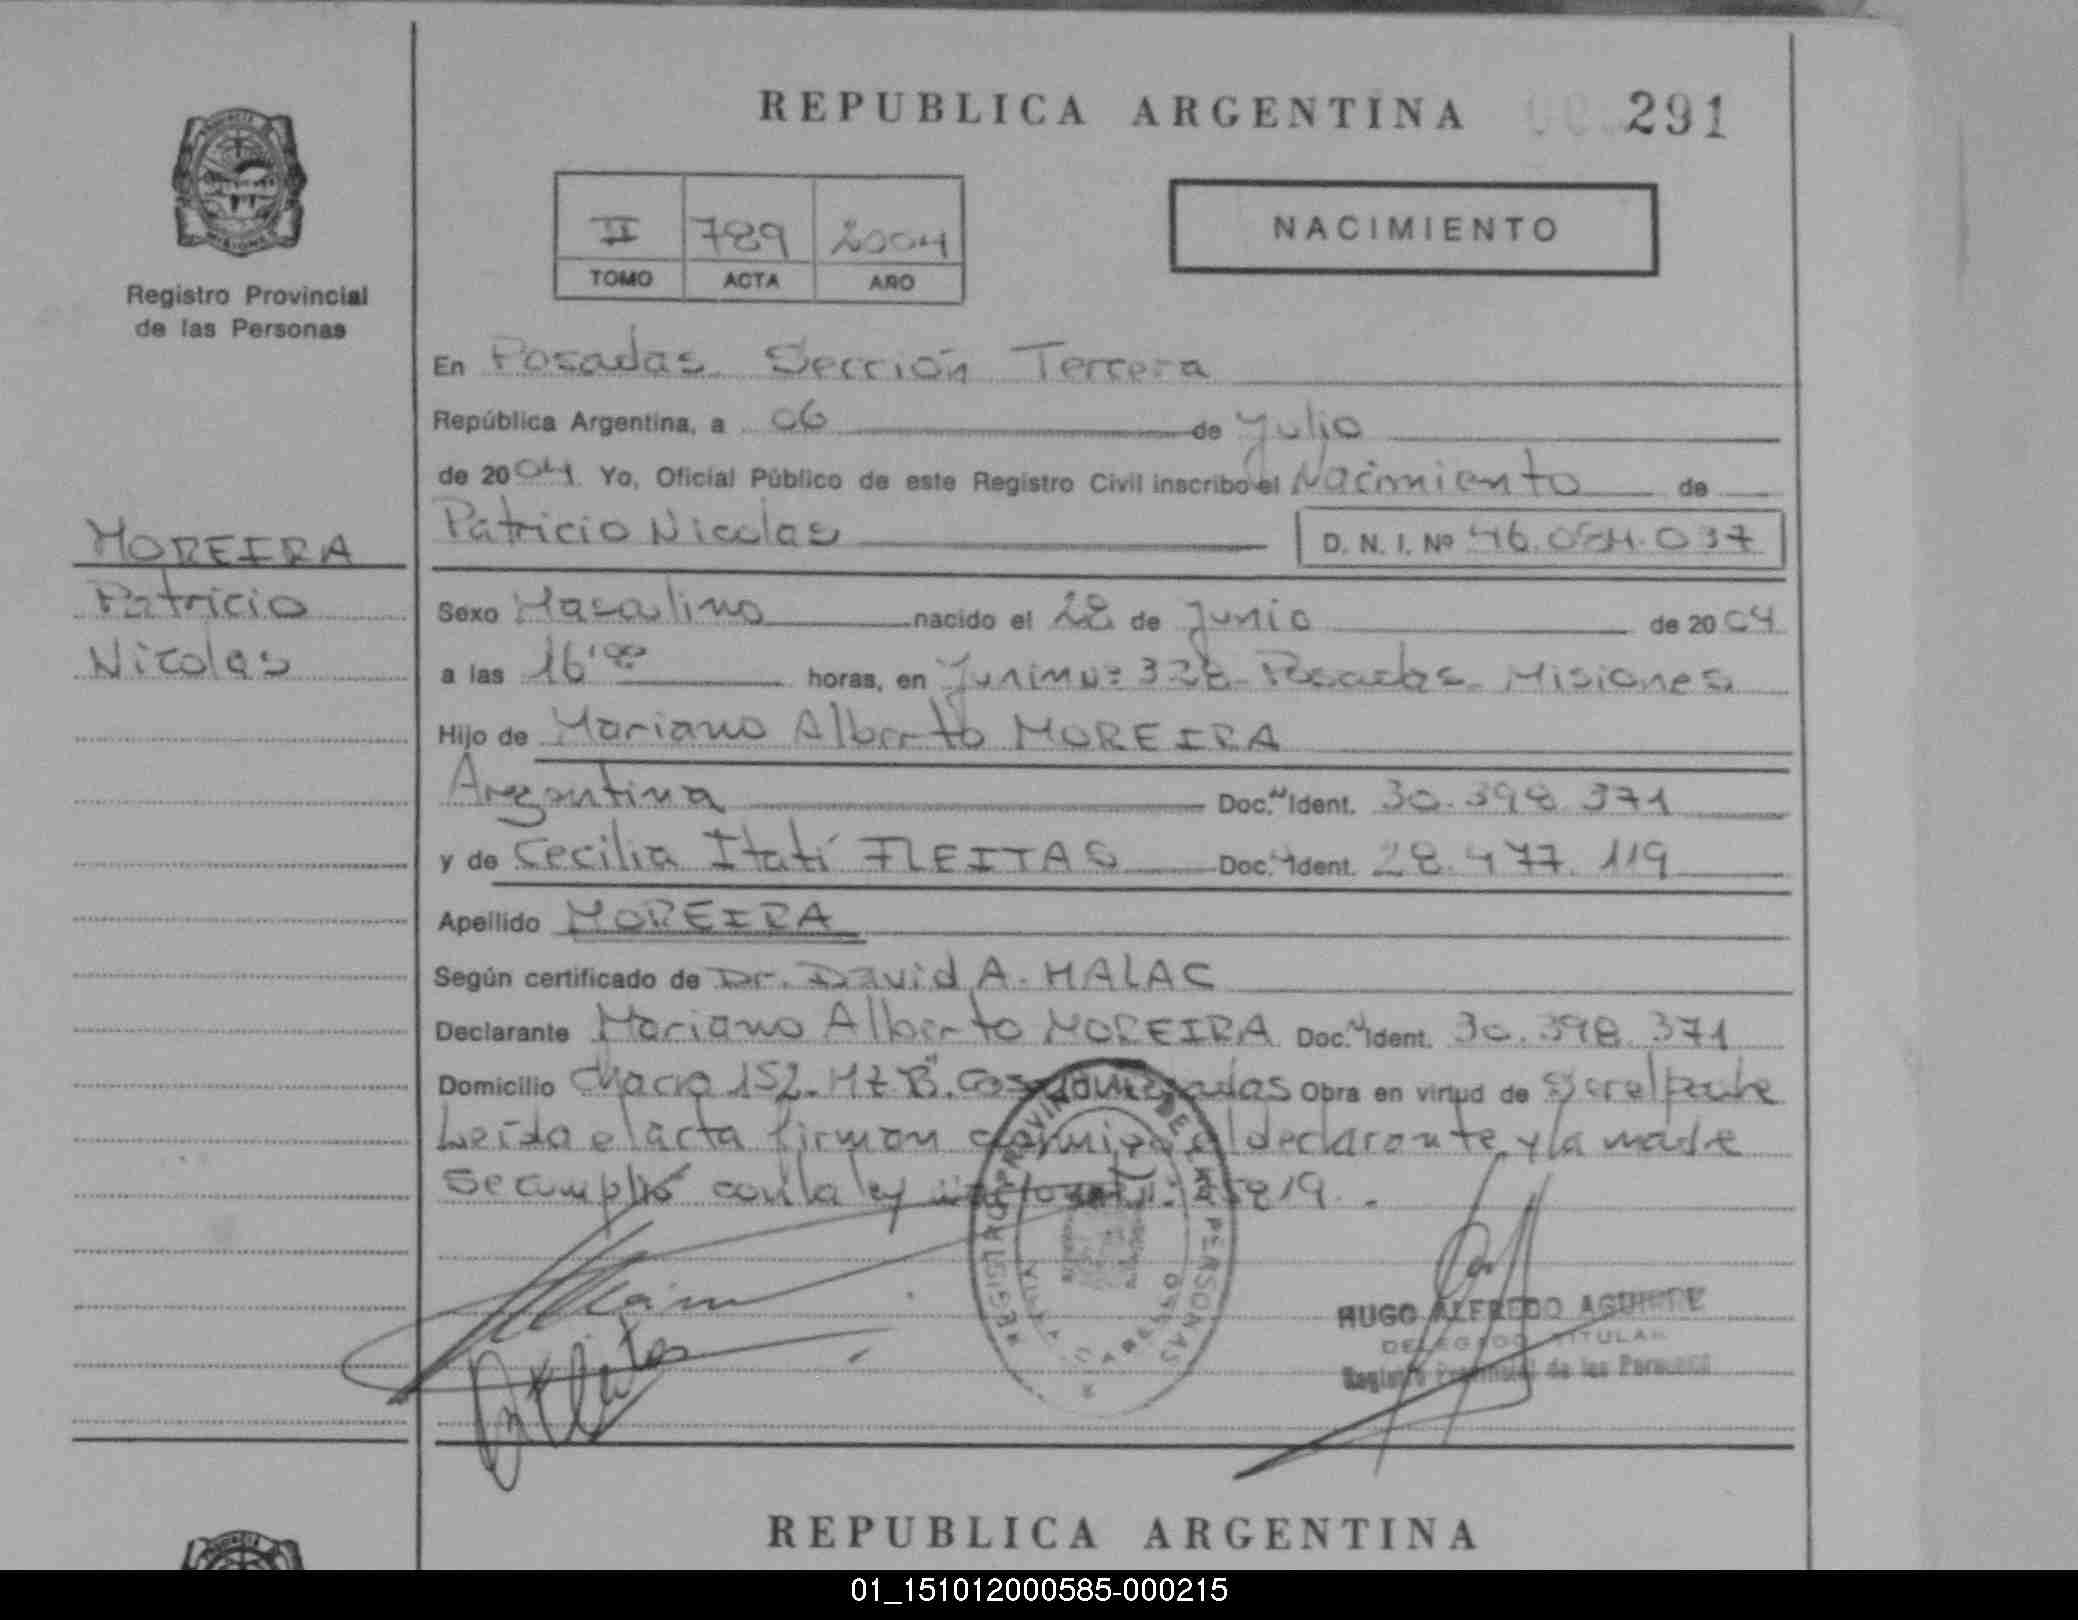 REPUBLICA ARGENTINA 291
II 789 2004
TOMO ACTA AÑO
NACIMIENTO
Registro Provincial
de las Personas
MOREIRA
Patricio
Nicolas
En Posadas Sección Tercera
República Argentina, a 06 de Julio
de 2004 Yo, Oficial Público de este Registro Civil inscribo el Nacimiento de
Patricio Nicolas D. N. I. Nº 46.084.037
Sexo Masculino nacido el 28 de Junio de 2004
a las 16'00 horas, en Junín Nº 328 Posadas Misiones
Hijo de Mariano Alberto MOREIRA
Argentina Doc. Ident. 30.398.371
y de Cecilia Itatí FLEITAS Doc. Ident. 28.477.119
Apellido MOREIRA
Según certificado de Dr. David A. MALAC
Declarante Mariano Alberto MOREIRA Doc. Ident. 30.398.371
Domicilio Chacra 152 Mz "B" Cos Obra en virtud de
Leída el acta firman conmigo el declarante y la madre
Se cumplió con la ley
REGISTRO PROVINCIAL DE LAS PERSONAS
HUGO ALFREDO AGUIRRE
DELEGADO TITULAR
Registro Provincial de las Personas
REPUBLICA ARGENTINA
01_151012000585-000215